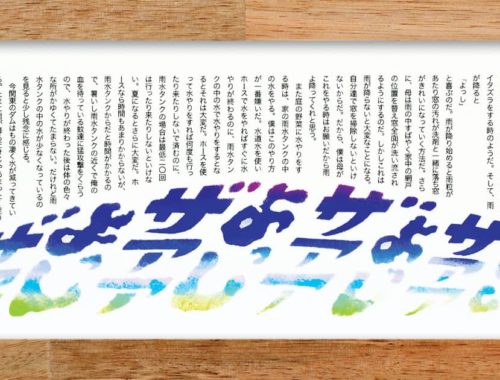 イタズラをする時のようだ。そして、雨
が降ると
「よっし」
と喜ぶのだ。雨が降り始めると雨粒が
あたり窓の汚れが洗剤と一緒に落ち窓
がきれいになっていく方法だ。さら
に、母は雨の中すばやく家中の網戸
の位置を替え窓全面が洗い流され
るようにするのだ。しかしこれは
雨が降らないと大変なことになる。
自分達で窓を掃除しないといけ
ないからだ。だから、僕は母が
これをやる時はお願いだから雨
よ降ってくれと思う。
また庭の野菜に水やりをす
る時は、家の雨水タンクの中
の水をやる。僕はこのやり方
が一番嫌いだ。水道水を使い
ホースで水をやればすぐに水
やりが終わるのに、雨水タン
クの中の水で水やりをするとな
るとそれは大変だ。ホースを使
って水やりをすれば何度も行っ
たり来たりしないで済むのに、
雨水タンクの場合は最低二〇回
は行ったり来たりしないといけな
い。夏になるとさらに大変だ。ホ
ースなら時間もあまりかからないが、
雨水タンクからだと時間がかかるの
で、暑いし雨水タンクの近くで俺の
血を待っている蚊達に猛攻撃をくらう
ので、水やりが終わった後は体の色々
な所がかゆくてたまらない。だけれど雨
水タンクの中の水が少なくなっているの
を見ると少し残念に感じる。
今関東のダムはもの凄く水が減ってきてい